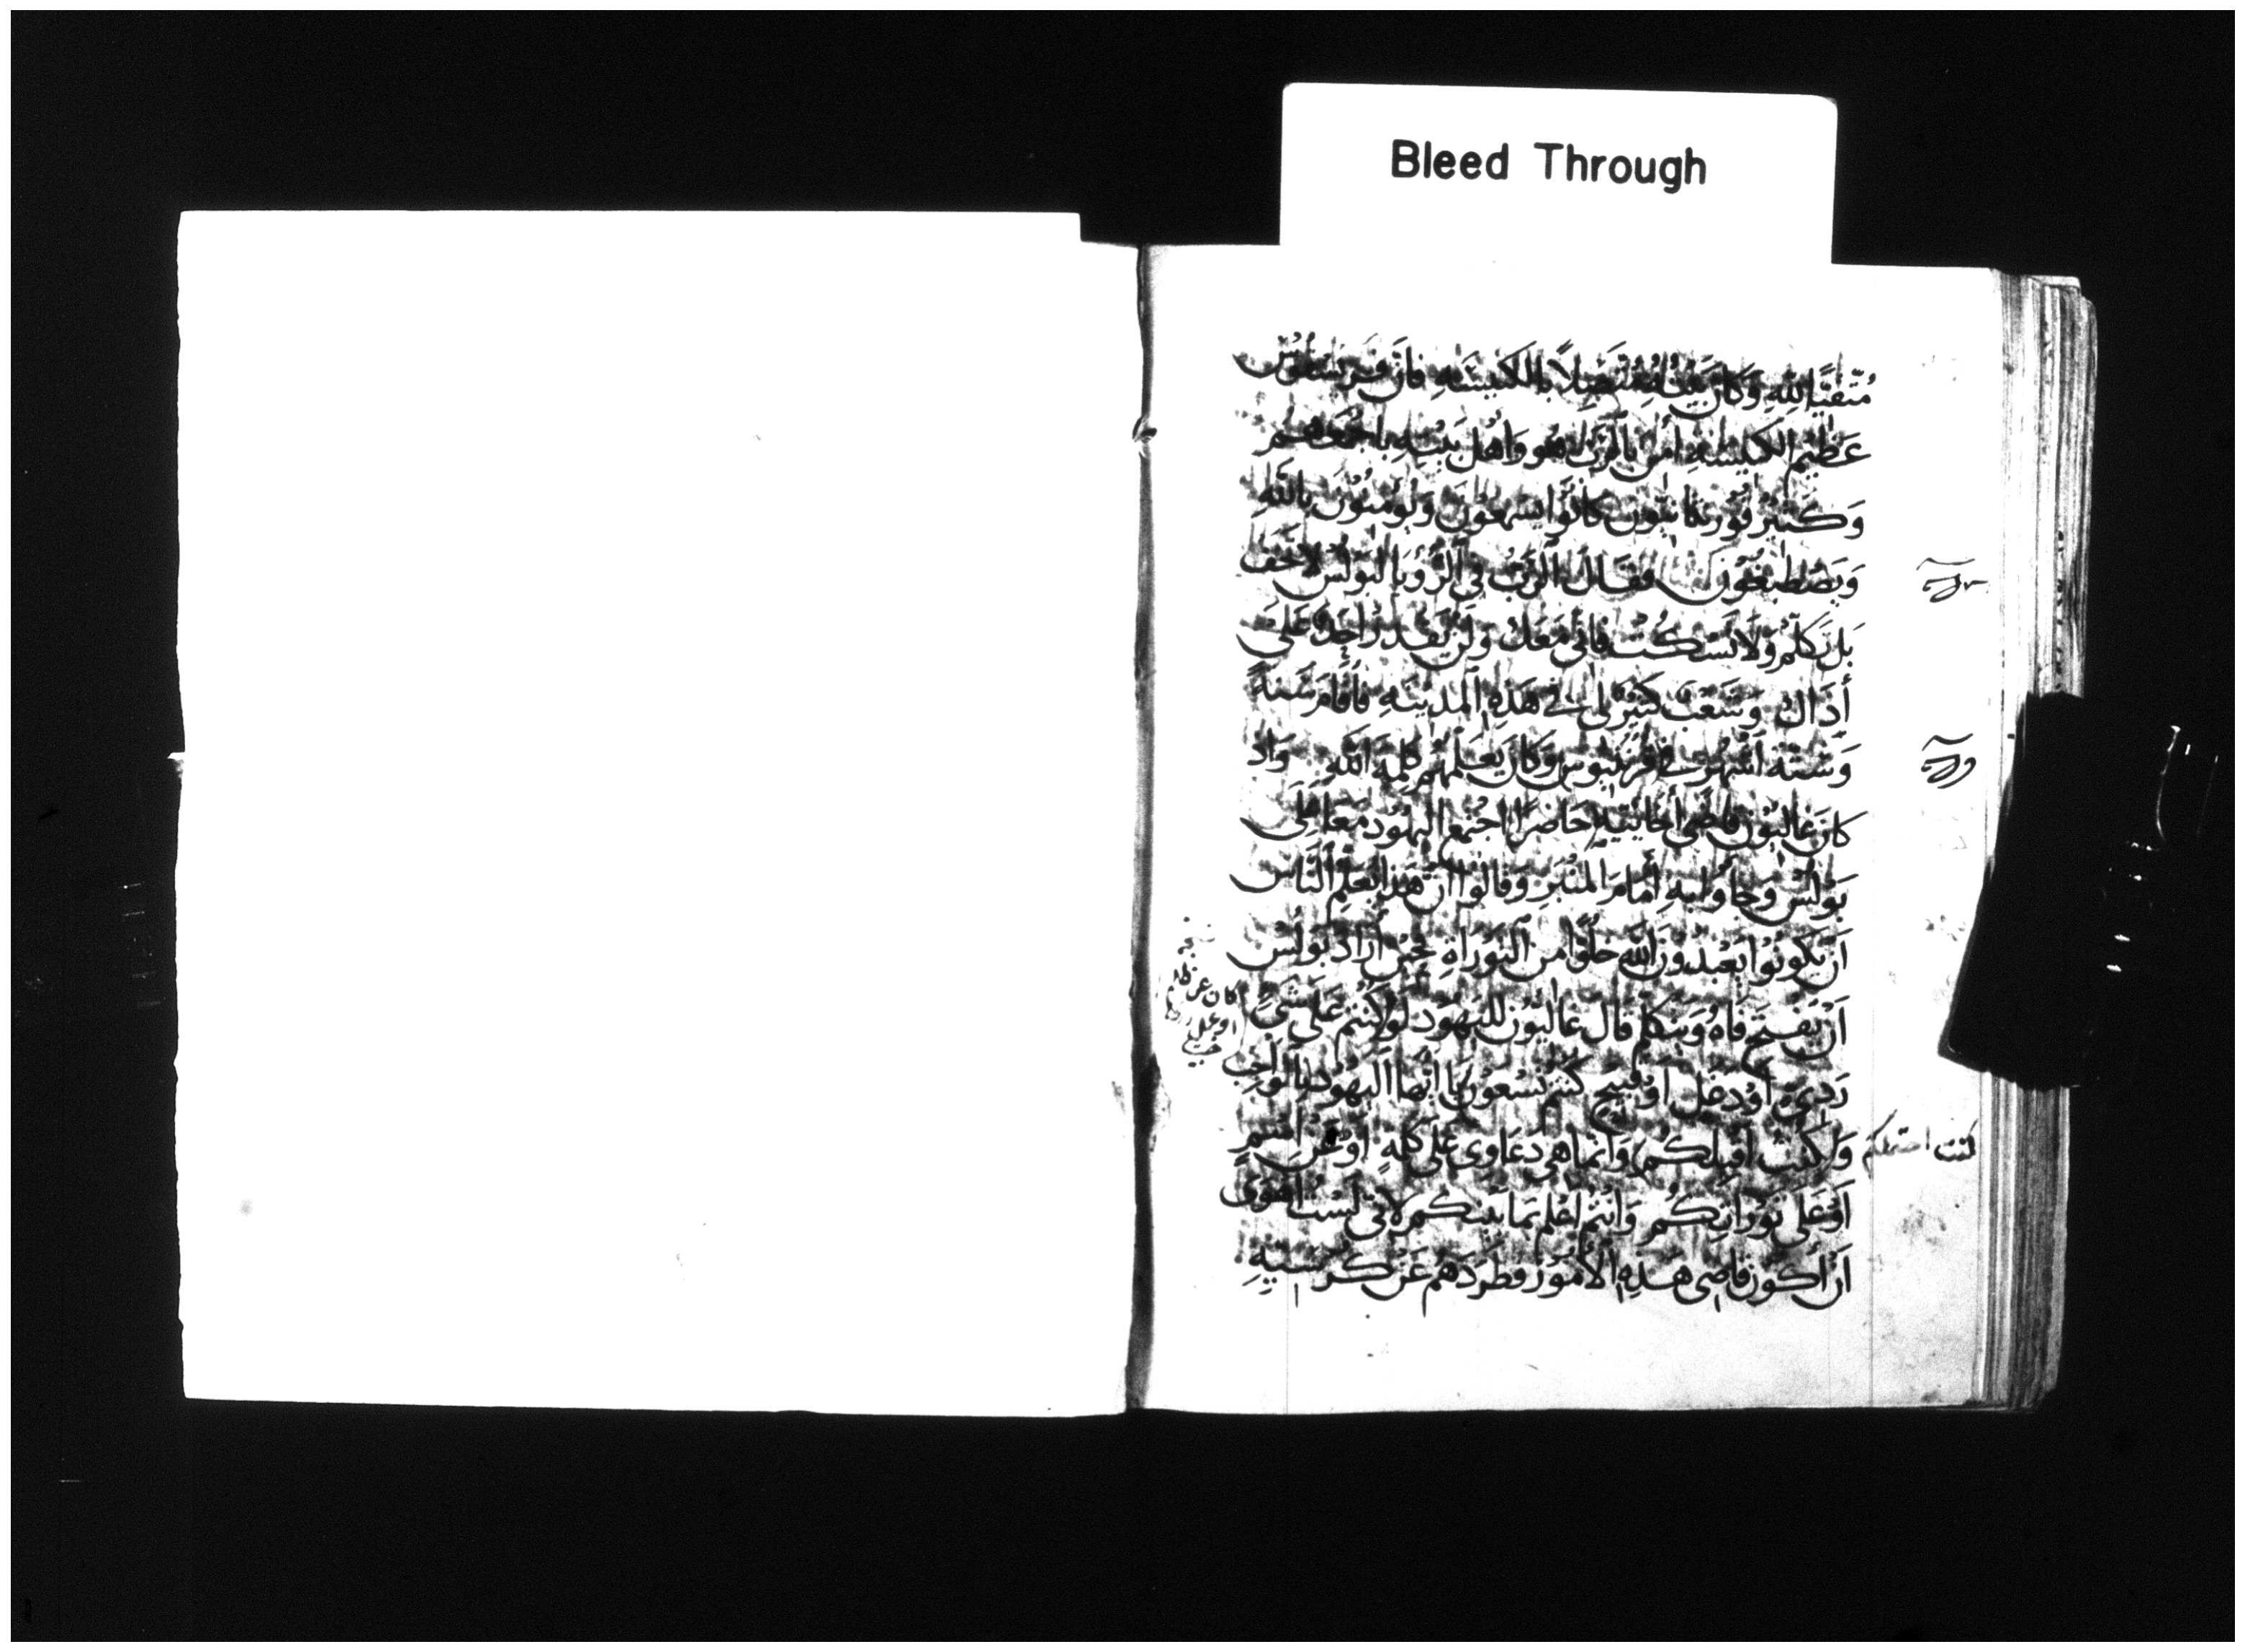 Bleed Through
مُتَّقيًا لِلّهِ وَكَانَ بَيْتُهُ مُتَّصِلًا بالكَنِيسَهِ فأن قرسفوس
عَظِيم الكنيسَهِ امن بالرَّبِّ هو وَاهْل بَيْتِهِ باجْمَعهم
وَكَثِيْر قورنثانيّون كانُوا يَسْمعُونَ وَيُومنُوْن بالله
وَيَصْطبغُوْن فقال الرَّبّ في الرُّؤيا لبَولس لا تخَف
بَل تَكلَّم وَلَا تَسْكُتْ فاني مَعَك وَلَن يَقْدر احَد عَلى
أذاك وَشَعْب كَثِيْر لي في هَذِهِ المَدينَهِ فأقامَ سَنةً
وَستّة اشهُر في قرنثيوس وَكان يَعَلّمهُم كلِمَة الله وَاذ
كان غاليُون قاضي أخائيّه حَاضرًا اجتمع اليهُود مَعا على
بَولس وَجاؤا بهِ أمَامَ المنْبَرِ وَقالوا انّ هَذا يعَلِّم النَّاس
اَن يَكونُوا يَعْبدُونَ اللَّه خلوًا من التورَاةِ فحِيْن أرَادَ بَولس
اَنْ يفتح فَاهُ وَيتكلّم قال غاليُون لليَهُود لَو كنتم عَلى شَيٍّ
رَديءٍ أوْ دغل اوْ قبيْح كنتم تسْعوْن يا ايّها اليَهُود بالوَاجب
وَا كنت اقبلكُم وَانّما هي دعَاوى عَلى كلمَةٍ اوْ عَن اسْمٍ
كنت احتملكم
اَوْ عَلَى تَوْرَاتكُم وَانتُم اعْلم بمَا بَيْنكم لانّي لَسْتُ اهْوى
اَنْ أكون قاضي هَذِهِ الأموْر فطرَدَهم عَنْ كرسيّهِ